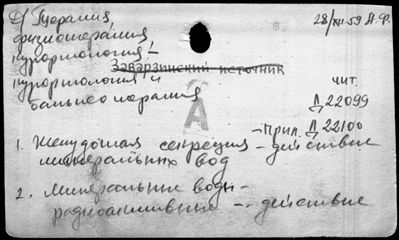 2) Терапия
28/XII-59 А.Ф.
физиотерапия
курортология!
Заварзинский источник
курортология и
бальнеотерапия
чит.
Д 22099
А
Прил. Д 22100
1. Желудочная секреция - действие
минеральных вод
2. Минеральные воды -
радиоактивные - действие